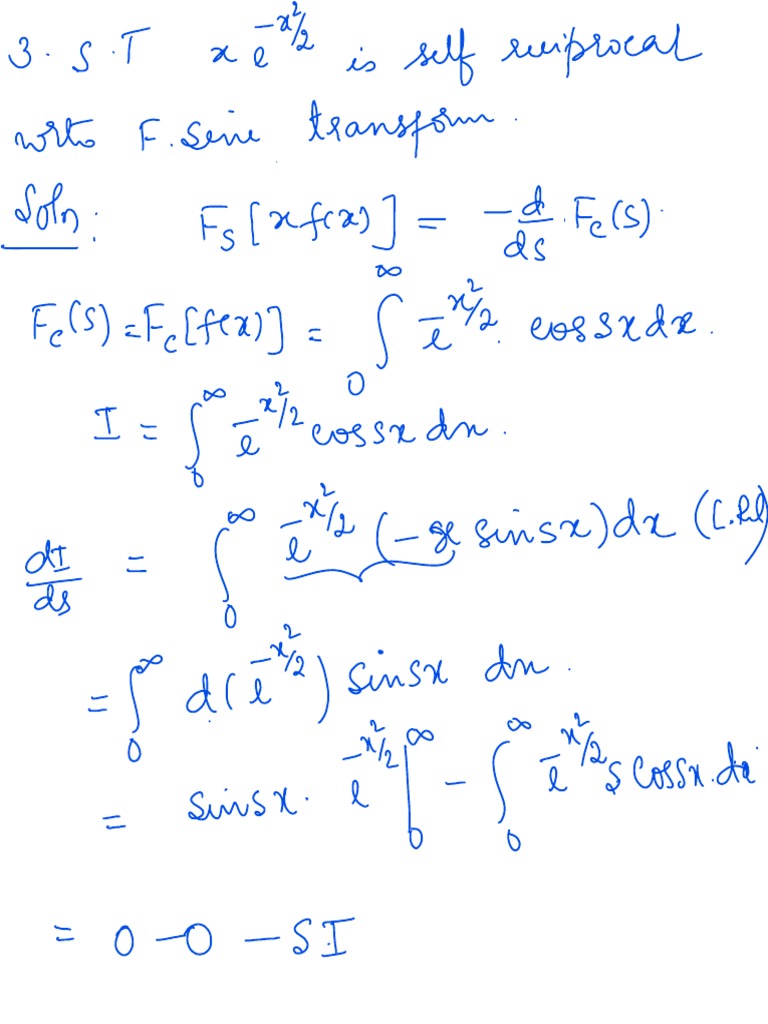 3. S.T x e^{-x²/2} is self reciprocal
wrto F. Sine transform.
Soln: F_S [x f(x)] = -d/ds . F_c(S).
F_c(S) = F_c[f(x)] = ∫_0^∞ e^{-x²/2} . cos sx dx.
I = ∫_0^∞ e^{-x²/2} cos sx dx.
dI/ds = ∫_0^∞ e^{-x²/2} (-x sin sx) dx
= ∫_0^∞ d(e^{-x²/2}) sin sx dx.
= sin sx . e^{-x²/2} |_0^∞ - ∫_0^∞ e^{-x²/2} s cos sx . dx
= 0 - 0 - SI